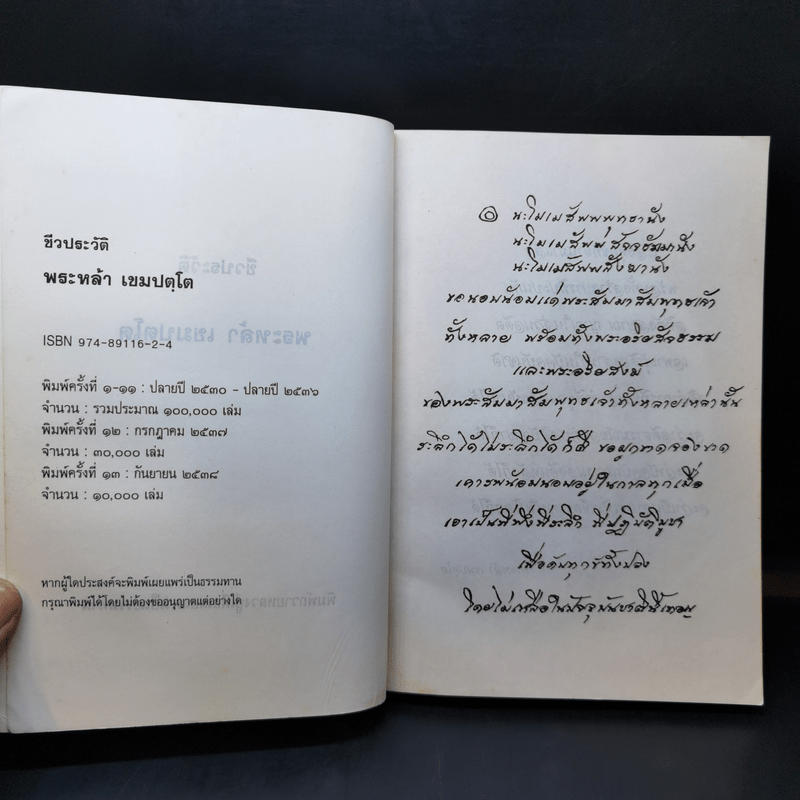 ชีวประวัติ
พระหล้า เขมปตฺโต
ISBN 974-89116-2-4
พิมพ์ครั้งที่ ๑-๑๑ : ปลายปี ๒๕๓๐ - ปลายปี ๒๕๓๖
จำนวน : รวมประมาณ ๑๐๐,๐๐๐ เล่ม
พิมพ์ครั้งที่ ๑๒ : กรกฎาคม ๒๕๓๗
จำนวน : ๓๐,๐๐๐ เล่ม
พิมพ์ครั้งที่ ๑๓ : กันยายน ๒๕๓๘
จำนวน : ๑๐,๐๐๐ เล่ม
หากผู้ใดประสงค์จะพิมพ์เผยแพร่เป็นธรรมทาน
กรุณาพิมพ์ได้โดยไม่ต้องขออนุญาตแต่อย่างใด
นะโมเมสัพพพุทธานัง
นะโมเมสัพพสัจจธัมมานัง
นะโมเมสัพพสังฆานัง
ขอนอบน้อมแด่พระสัมมาสัมพุทธเจ้า
ทั้งหลาย พร้อมทั้งพระอริยสัจธรรม
และพระอริยสงฆ์
ของพระสัมมาสัมพุทธเจ้าทั้งหลายเหล่านั้น
ระลึกได้ไม่ระลึกได้ก็ดี ขอผูกขาดจองขาด
เคารพน้อมนอบอยู่ในกาลทุกเมื่อ
เอาเป็นที่พึ่งที่ระลึก ที่ปฏิบัติบูชา
เพื่อดับทุกข์ทั้งปวง
โดยไม่เหลือในปัจจุบันชาตินี้เทอญ